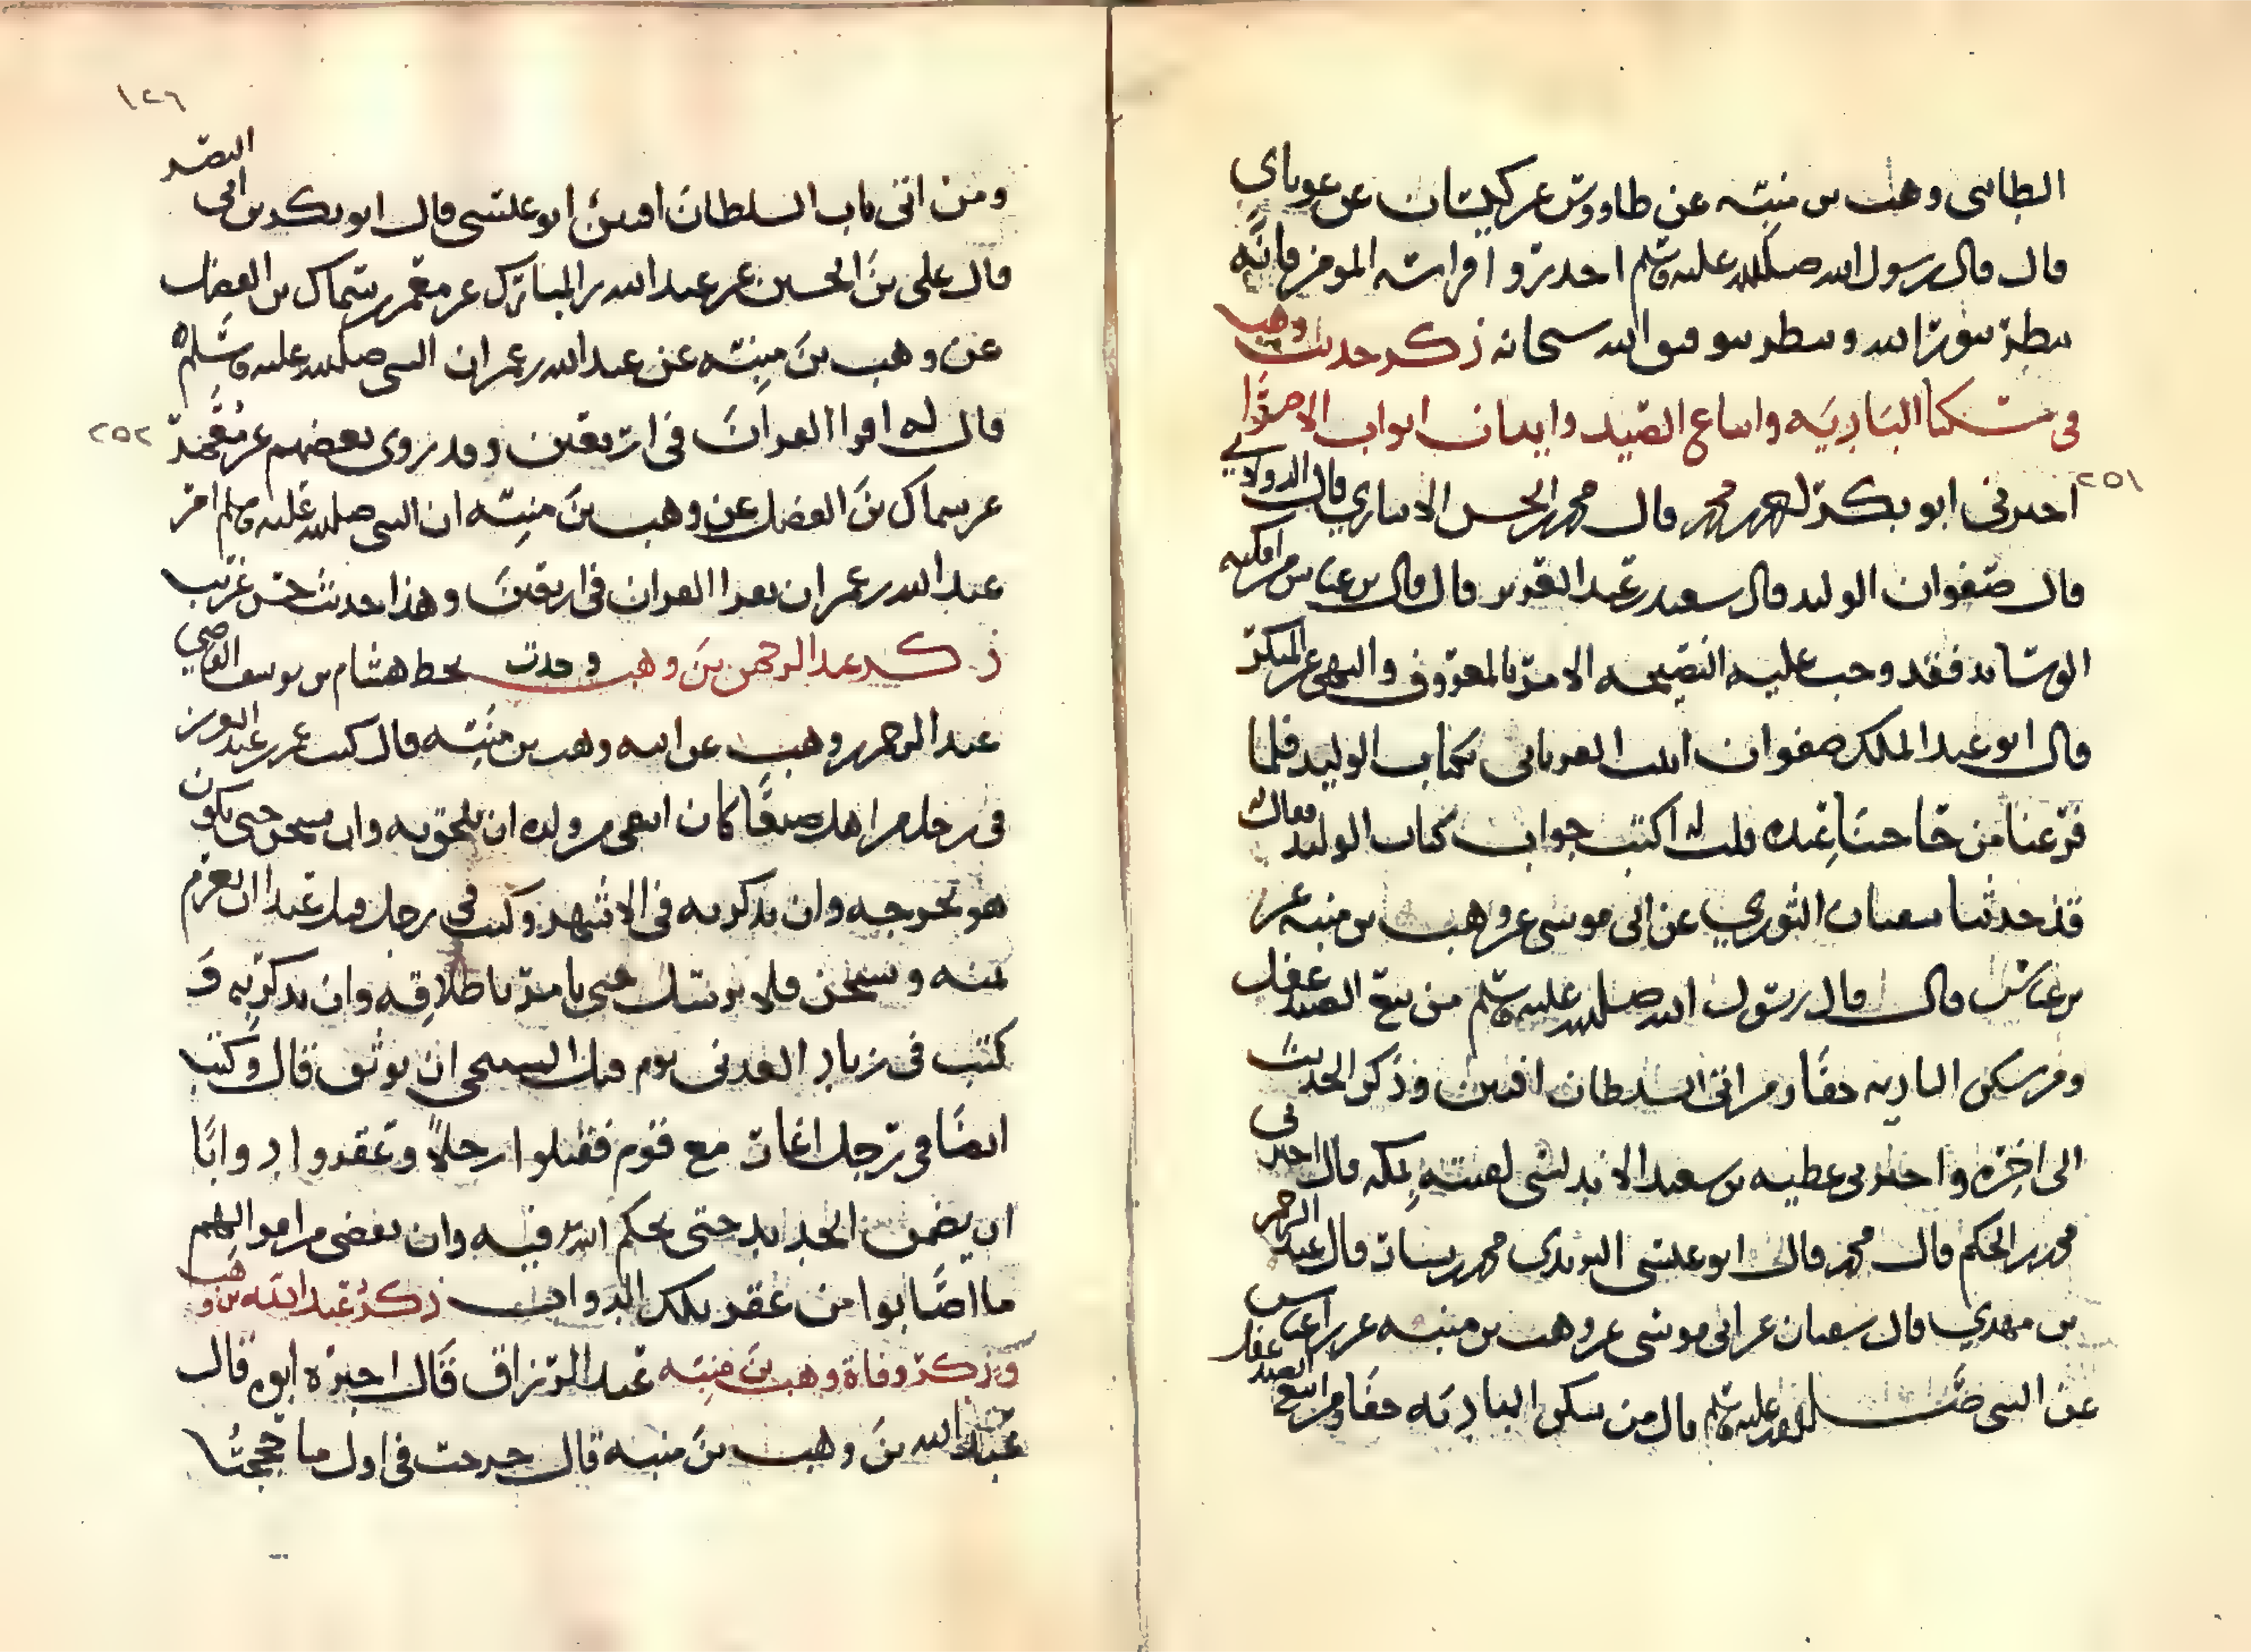 الطائى وهب بن منبه عن طاووس عن كيسان عن ثوبان
قال قال رسول الله صلى الله عليه وسلم احذروا فراسة المؤمن فانه
ينظر بنور الله وينظر بتوفيق الله سبحانه ذكر حديث وهب
فى سكنا البادية واتباع الصيد واتيان ابواب الامرا
٢٥١
اخبرنى ابو بكر محمد قال محمد بن الحسن الانبارى قال الدولابي
قال صفوان الوليد قال سعيد بن عبد العزيز قال قال بن عباس من امكنه
الوساد فقد وجب عليه النصيحه الامر بالمعروف والنهى عن المنكر
قال ابو عبد الملك صفوان اتيت الفريابى بكتاب الوليد فلما
فرغنا من حاجتنا عنده قلت له اكتب جواب كتاب الوليد فقال له
قد حدثنا سفيان الثوري عن ابى موسى عن وهب بن منبه عن
بن عباس قال قال رسول الله صلى الله عليه وسلم من تبع الصيد غفل
ومن سكن البادية جفا ومن اتى السلطان افتتن وذكر الحديث
الى اخره واخبرنى عطيه بن سعيد الاندلسى لقيته بمكه قال اخبرنى
محمد بن الحكم قال محمد قال ابو عيسى الترمذى محمد بن بشار قال عبد الرحمن
بن مهدي قال سفيان عن ابى موسى عن وهب بن منبه عن ابن عباس
عن النبى صلى الله عليه وسلم قال من سكن البادية جفا ومن اتبع الصيد غفل
١٢٦
ومن اتى باب السلطان افتتن ابو عيسى قال ابو بكر بن ابى النضر
قال على بن الحسين عن عبد الله بن المبارك عن معمر عن سماك بن الفضل
عن وهب بن منبه عن عبد الله بن عمر ان النبى صلى الله عليه وسلم
قال له اقرا القران فى اربعين وقد روى بعضهم عن معمر
٢٥٢
عن سماك بن الفضل عن وهب بن منبه ان النبى صلى الله عليه وسلم امر
عبد الله بن عمر ان يقرا القران فى اربعين وهذا حديث حسن غريب
ذكر عبد الرحمن بن وهب وجدت بخط هشام بن يوسف القاضي
عبد الرحمن بن وهب عن ابيه وهب بن منبه قال كتب عمر بن عبد العزيز
فى رجل من اهل صنعا كان انتفى من ولده ان يلحق به وان يسجن حتى يكون
هو يخرجه وان يذكر به فى الاشهر وكتب فى رجل قبل عبدا ان يغرم
ثمنه ويسجن فلا يرسل حتى يامر باطلاقه وان يذكر به و
كتب فى زياد العدنى يوم قتل ان يوثق قال وكتب
ايضا فى رجل اغار مع قوم فقتلوا رجلا وعقروا دوابا
ان يضمن الحديد حتى يحكم الله فيه وان يقضى من اموالهم
ما اصابوا من عقر تلك الدواب ذكر عبد الله بن وهب
وذكر وفاة وهب بن منبه عبد الرزاق قال اخبره ابوه قال
عبد الله بن وهب بن منبه قال خرجت فى اول ما حججنا